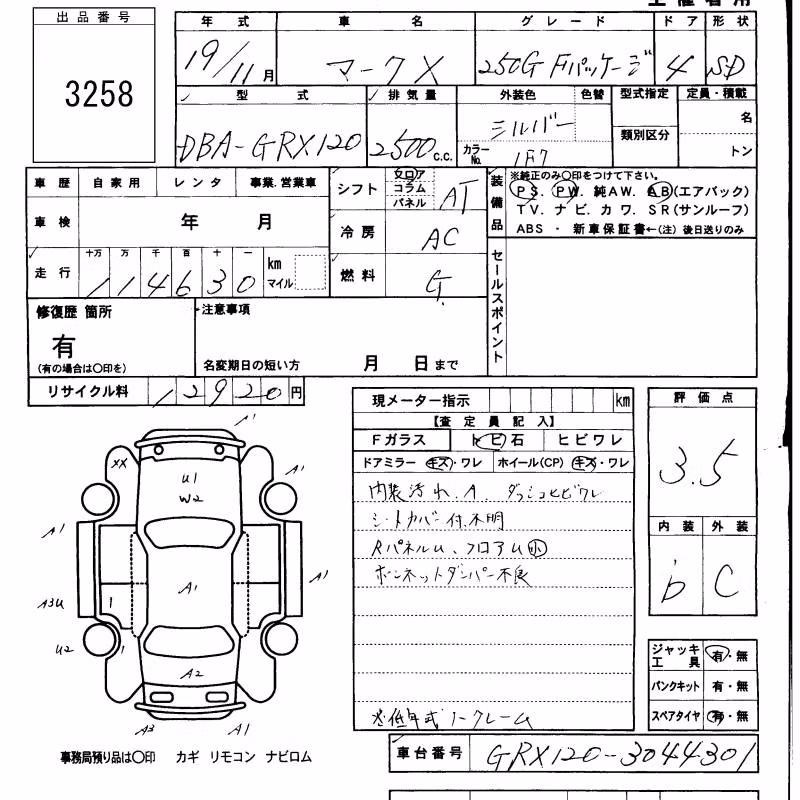 主催者用
出品番号
3258
年式 車名 グレード ドア 形状
19/11月 マークX 250G Fパッケージ 4 SD
型式 排気量 外装色 色替 型式指定 定員・積載
DBA-GRX120 2500c.c. シルバー 名
カラーNo. 1F7 類別区分 トン
車歴 自家用 レンタ 事業.営業車
シフト フロア コラム パネル AT
装備品
※純正のみ○印をつけて下さい。
PS. PW. 純AW. AB(エアバック)
TV. ナビ. カワ. SR(サンルーフ)
ABS ・ 新車保証書←(注) 後日送りのみ
車検 年 月
冷房 AC
走行 十万 万 千 百 十 一 km マイル
114630
燃料 G
セールスポイント
修復歴 箇所
有
(有の場合は○印を)
注意事項
名変期日の短い方 月 日まで
リサイクル料 12920円
現メーター指示 km
【査定員記入】
Fガラス トビ石 ヒビワレ
ドアミラー キズ・ワレ ホイール(CP) キズ・ワレ
内装汚れ.A. ダッシュヒビワレ
シートカバー付.不明
Rパネルu、フロアu小
ボンネットダンパー不良
※低年式ノークレーム
評価点
3.5
内装 外装
b C
ジャッキ工具 有・無
パンクキット 有・無
スペアタイヤ 有・無
A1
XX
U1
W2
A1
A1
A1
A1
A3U
1
U2
1
A2
A3
A1
事務局預り品は○印 カギ リモコン ナビロム
車台番号 GRX120-3044301